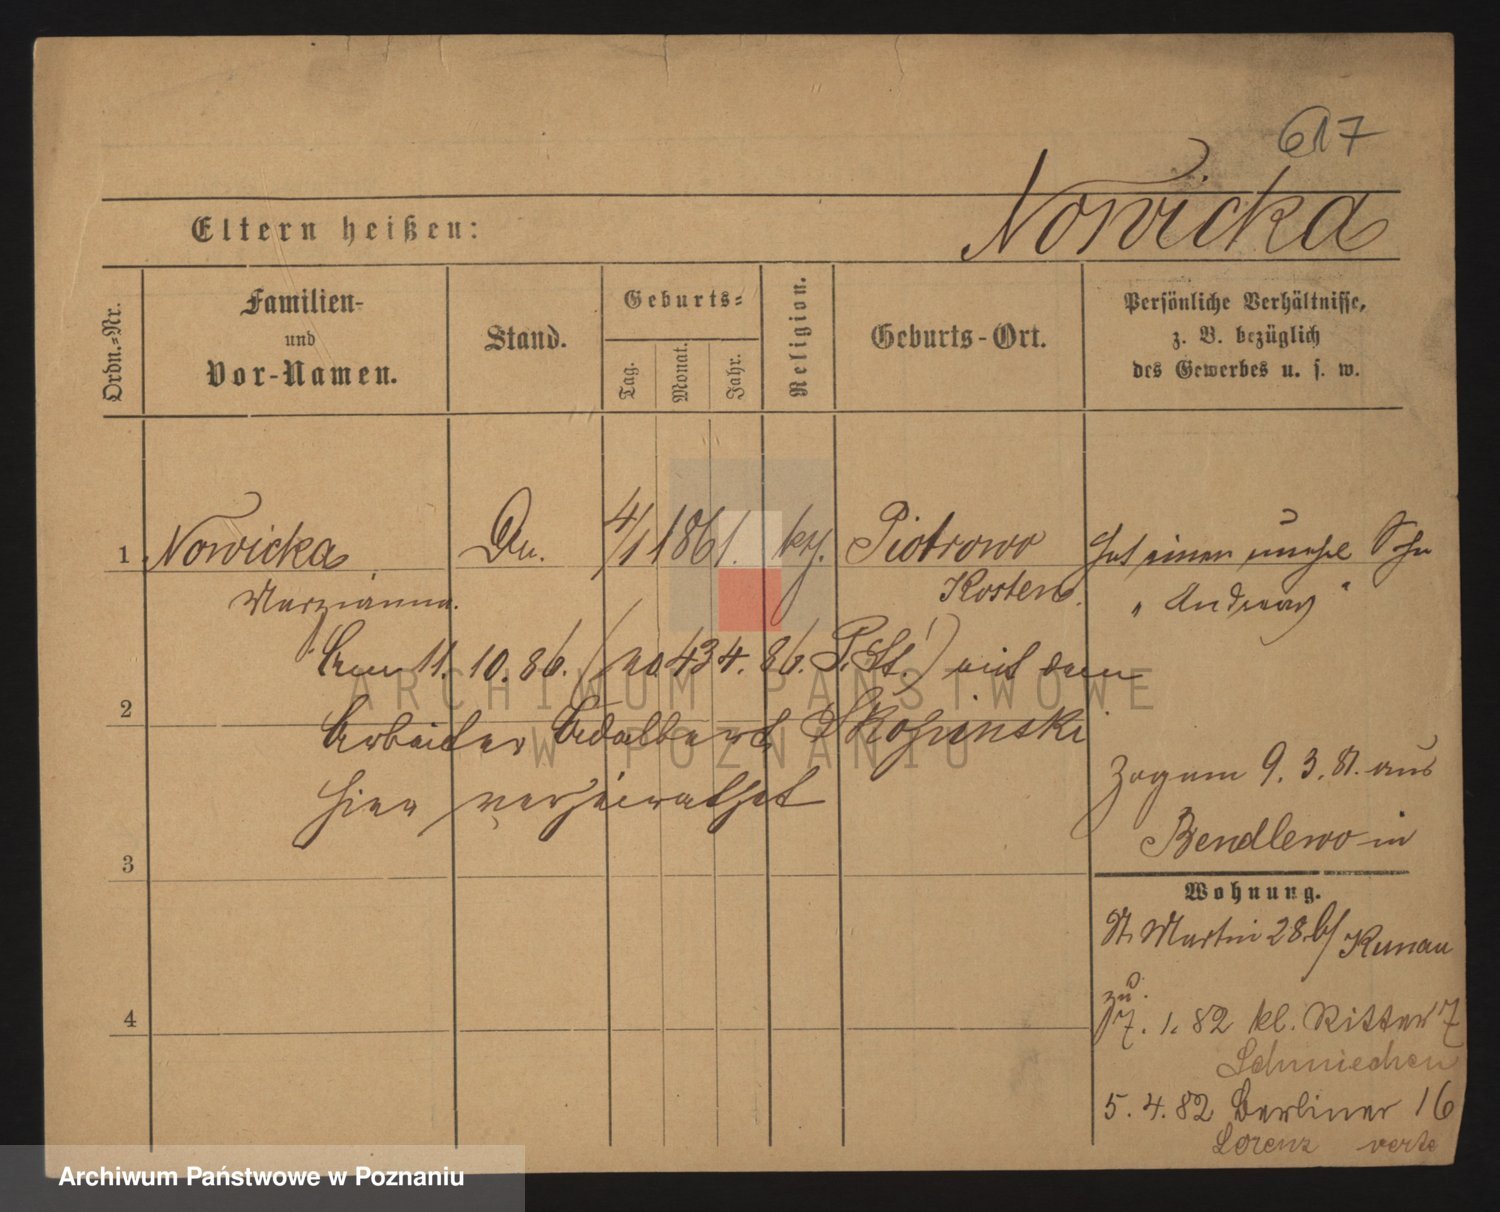 617
Nowicka
Eltern heißen:
Ordn.-Nr.
Familien-
und
Vor-Namen.
Stand.
Geburts-
Tag.
Monat.
Jahr.
Religion.
Geburts-Ort.
Persönliche Verhältnisse,
z. B. bezüglich
des Gewerbes u. s. w.
1 Nowicka 4/1 1861. Piotrowo hat einen unehel Sohn
Marzianna. Kosten. „Andreas"
Am 11. 10. 86. (No 434. 86. P. St.) mit dem
2 Arbeiter Adalbert Skopinski
hier verheirathet
Zog am 9. 3. 81. aus
Bendlewo in
3
Wohnung.
St. Martin 28. b/ Kunau
zu.
4 17. 1. 82 kl. Ritter 7
Schmiechen
5. 4. 82 Berliner 16
Lorenz verte
ARCHIWUM PAŃSTWOWE
W POZNANIU
Archiwum Państwowe w Poznaniu